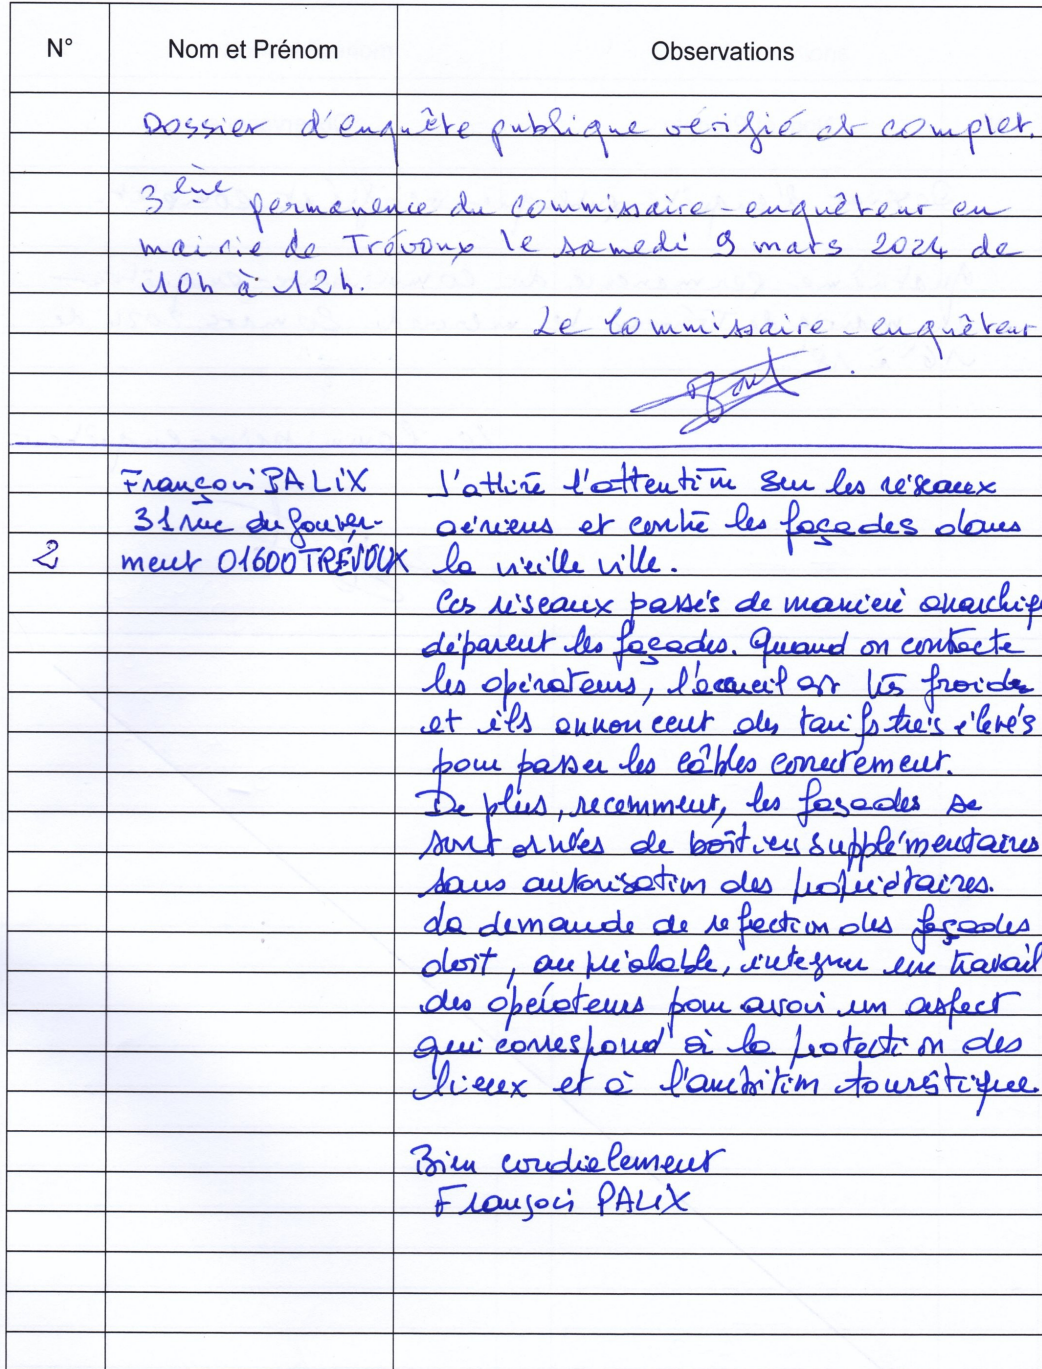 N° Nom et Prénom Observations
Dossier d'enquête publique vérifié et complet.
3ème permanence du commissaire-enquêteur en
mairie de Trévoux le samedi 9 mars 2024 de
10h à 12h.
Le Commissaire-enquêteur
François PALIX
31 rue du gouver-
2 ment 01600 TRÉVOUX
J'attire l'attention sur les réseaux
aériens et contre les façades dans
la vieille ville.
Ces réseaux passés de manière anarchiq
déparent les façades. Quand on contacte
les opérateurs, l'accueil est très froide
et ils annoncent des tarifs très élevés
pour passer les câbles correctement.
De plus, recemment, les façades se
sont ornées de boîtiers supplémentaires
sans autorisation des propriétaires.
La demande de refection des façades
doit, au préalable, intégrer un travail
des opérateurs pour avoir un aspect
qui correspond à la protection des
lieux et à l'ambition touristique.
Bien cordialement
François PALIX